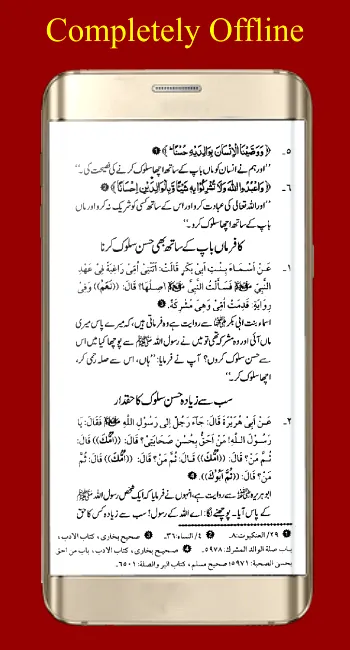 Completely Offline
۵۔ ﴿وَوَصَّيْنَا الْاِنْسَانَ بِوَالِدَيْهِ حُسْنًا﴾ ❶
’’اور ہم نے انسان کو ماں باپ کے ساتھ اچھا سلوک کرنے کی نصیحت کی۔‘‘
۶۔ ﴿وَاعْبُدُوا اللّٰهَ وَلَا تُشْرِكُوْا بِهٖ شَيْئًا وَّبِالْوَالِدَيْنِ اِحْسَانًا﴾ ❷
’’اور اللہ تعالیٰ کی عبادت کرو اور اس کے ساتھ کسی کو شریک نہ کرو اور ماں
باپ کے ساتھ اچھا سلوک کرو۔‘‘
کافر ماں باپ کے ساتھ بھی حسن سلوک کرنا
۱۔ عَنْ اَسْمَاءَ بِنْتِ اَبِيْ بَكْرٍ قَالَتْ: اَتَتْنِيْ اُمِّيْ رَاغِبَةً فِيْ عَهْدِ
النَّبِيِّ ﷺ فَسَاَلْتُ النَّبِيَّ ﷺ اَصِلُهَا؟ قَالَ: ((نَعَمْ)) وَفِيْ
رِوَايَةٍ: قَدِمَتْ اُمِّيْ وَهِيَ مُشْرِكَةٌ. ❸
اسماء بنت ابی بکر ؓ سے روایت ہے وہ فرماتی ہیں، کہ میرے پاس میری
ماں آئی اور وہ مشرکہ تھی تو میں نے رسول اللہ ﷺ سے پوچھا کیا میں اس
سے حسن سلوک کروں؟ آپ نے فرمایا: ’’ہاں، اس سے صلہ رحمی کر،
اچھا سلوک کر۔‘‘
سب سے زیادہ حسن سلوک کا حقدار
۲۔ عَنْ اَبِيْ هُرَيْرَةَ قَالَ: جَآءَ رَجُلٌ اِلٰى رَسُوْلِ اللّٰهِ ﷺ فَقَالَ: يَا
رَسُوْلَ اللّٰهِ! مَنْ اَحَقُّ بِحُسْنِ صَحَابَتِيْ؟ قَالَ: ((اُمُّكَ)) قَالَ:
ثُمَّ مَنْ؟ قَالَ: ((اُمُّكَ)) قَالَ: ثُمَّ مَنْ؟ قَالَ: ((اُمُّكَ)) قَالَ: ثُمَّ
مَنْ؟ قَالَ: ((ثُمَّ اَبُوْكَ)). ❹
ابو ہریرہ ؓ سے روایت ہے، انہوں نے فرمایا کہ ایک شخص رسول اللہ ﷺ
کے پاس آیا۔ پوچھنے لگا: اے اللہ کے رسول! سب سے زیادہ کس کا حق
❶ ۲۹/ العنكبوت: ۸۔ ❷ ۴/ النساء: ۳۶۔ ❸ صحيح بخارى، كتاب الادب،
باب صلة الوالد المشرك: ۵۹۷۸۔ ❹ صحيح بخارى، كتاب الادب، باب من احق
بحسن الصحبة: ۵۹۷۱؛ صحيح مسلم، كتاب البر والصلة: ۶۵۰۱۔